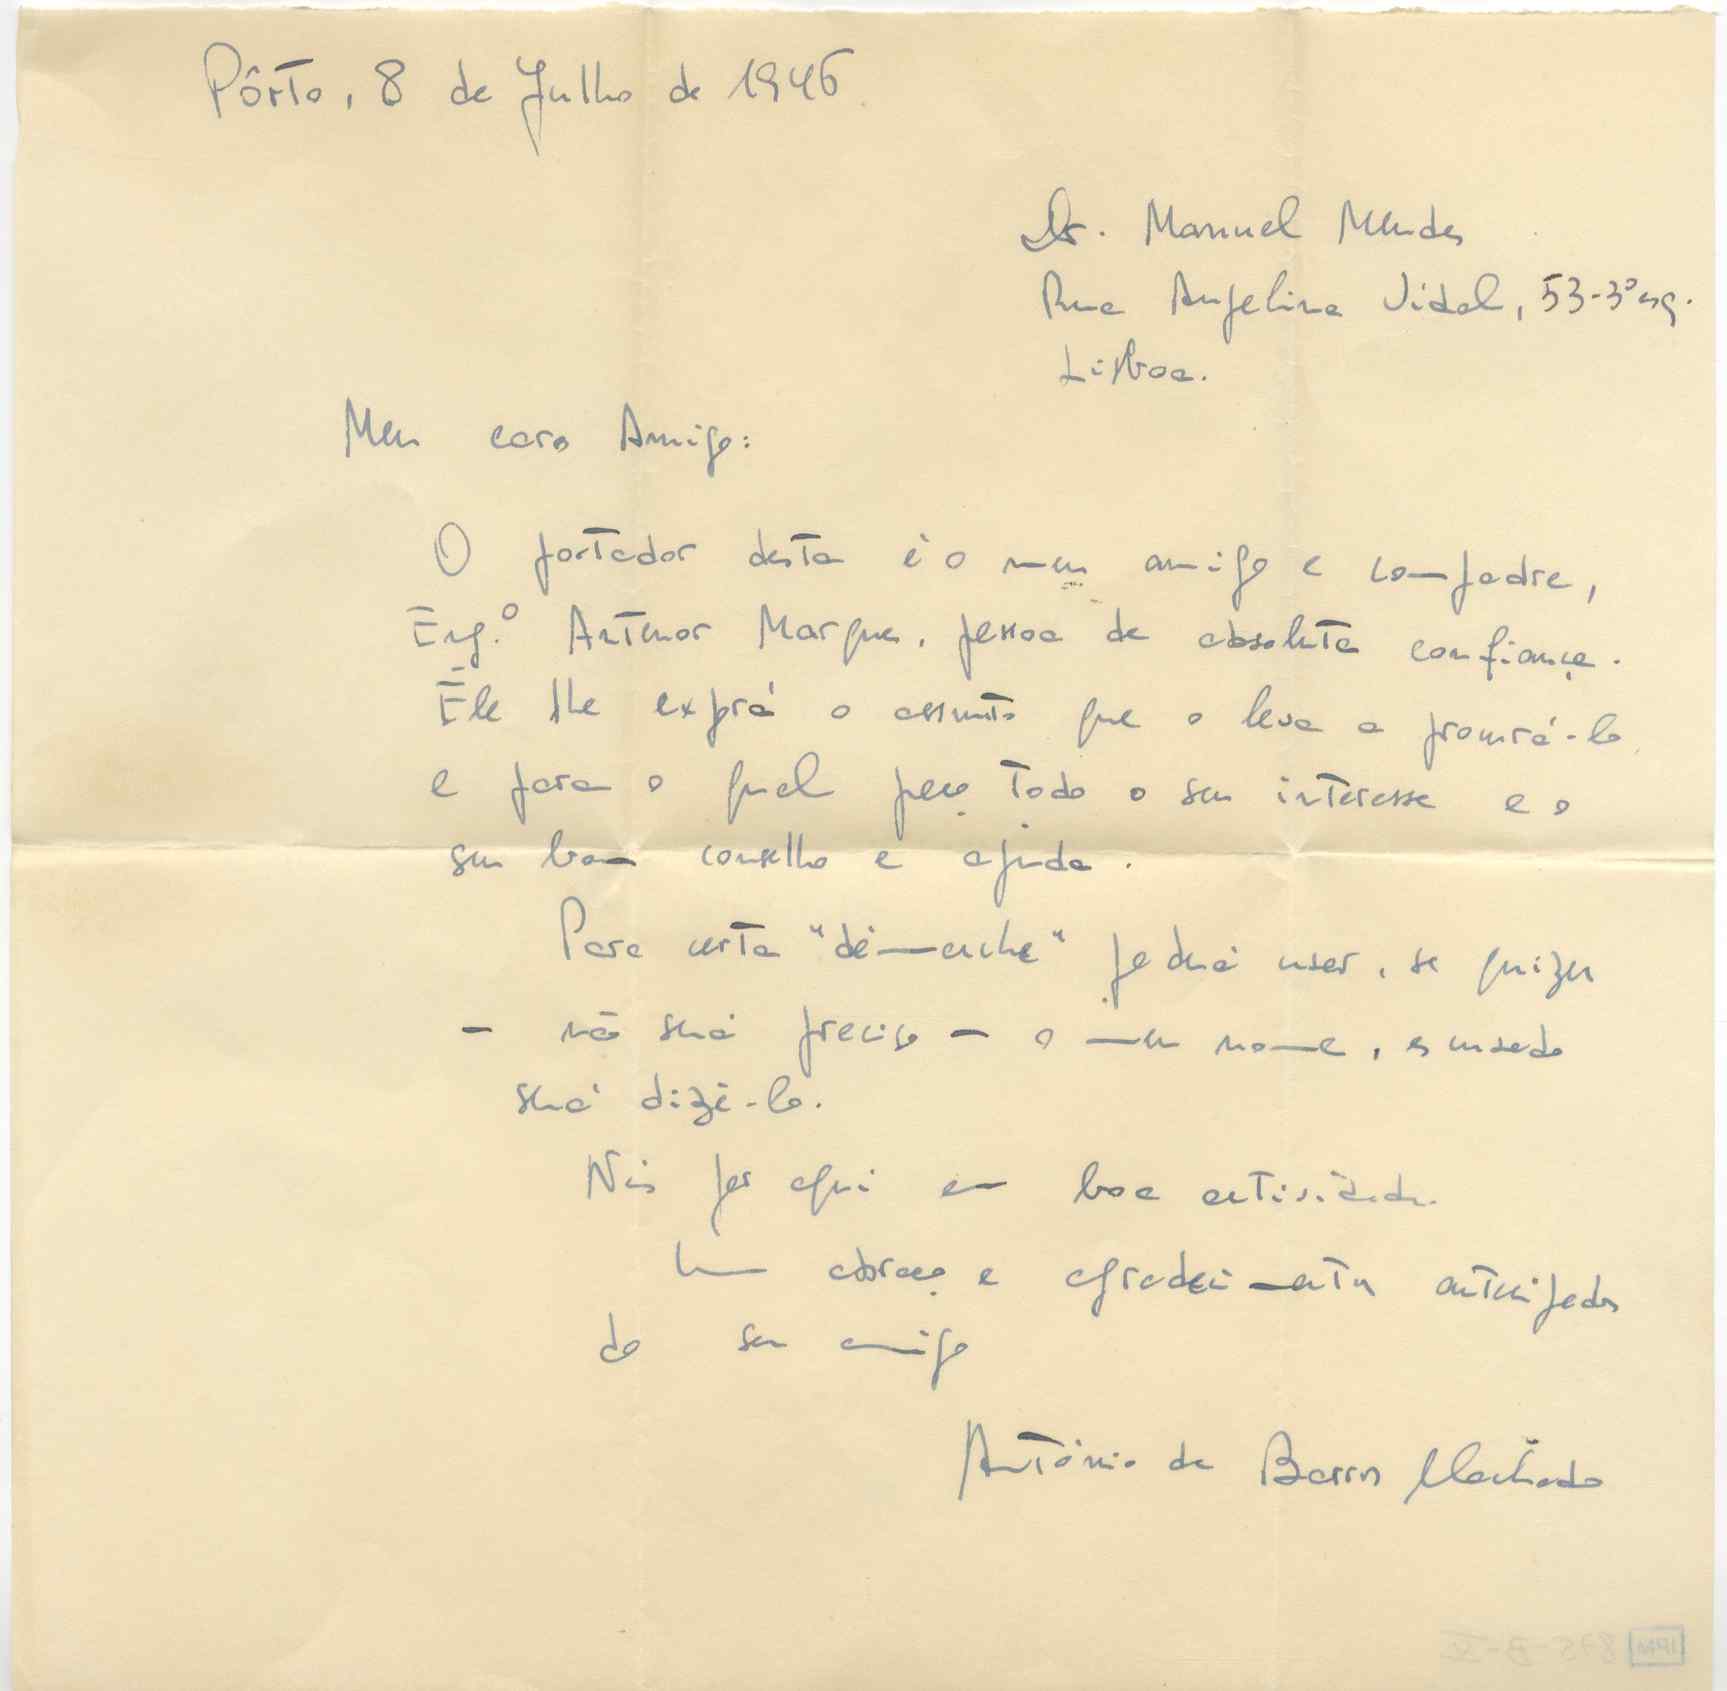 Pôrto, 8 de Julho de 1946.
Dr. Manuel Mendes
Rua Angelina Vidal, 53-3º esq.
Lisboa.
Meu caro Amigo:
O portador desta é o meu amigo e compadre,
Eng.º Antenor Marques, pessoa de absoluta confiança.
Êle lhe exporá o assunto que o leva a procurá-lo
e para o qual peço todo o seu interesse e o
seu bom conselho e ajuda.
Para certa "démarche" poderá usar, se quizer
- não será preciso - o meu nome, escusado
será dizê-lo.
Nós por aqui em boa actividade.
Um abraço e agradecimentos antecipados
do seu amigo
António de Barros Machado
IPM 875-B-